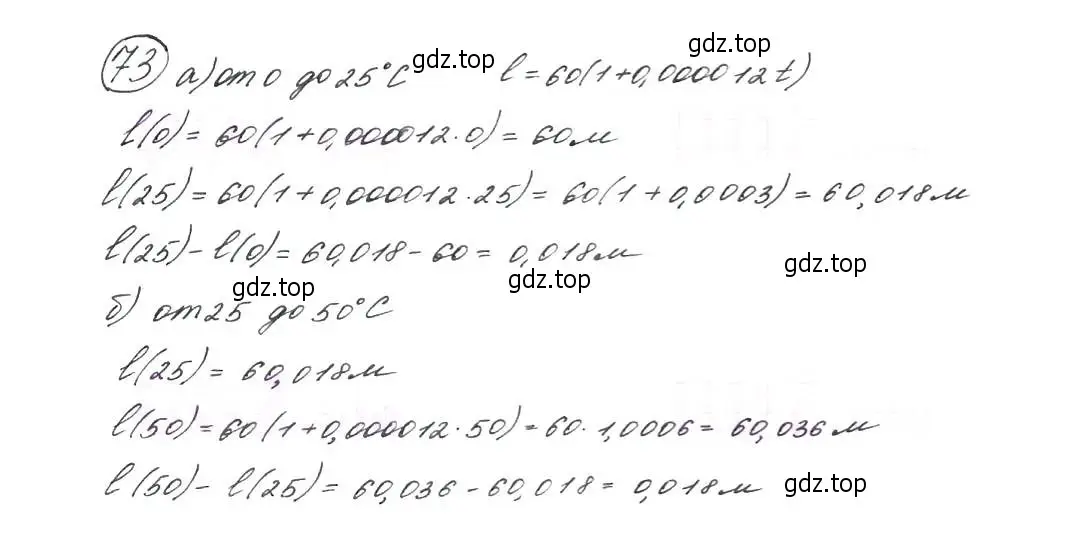 73 а) от 0 до 25°C gdz.top l = 60(1+0,000012t) gdz.top
l(0) = 60(1+0,000012·0) = 60м
l(25) = 60(1+0,000012·25) = 60(1+0,0003) = 60,018м
l(25) - l(0) = 60,018 - 60 = 0,018м gdz.top
gdz.top gdz.top
б) от 25 до 50°C
l(25) = 60,018м
l(50) = 60(1+0,000012·50) = 60·1,0006 = 60,036м
l(50) - l(25) = 60,036 - 60,018 = 0,018м gdz.top